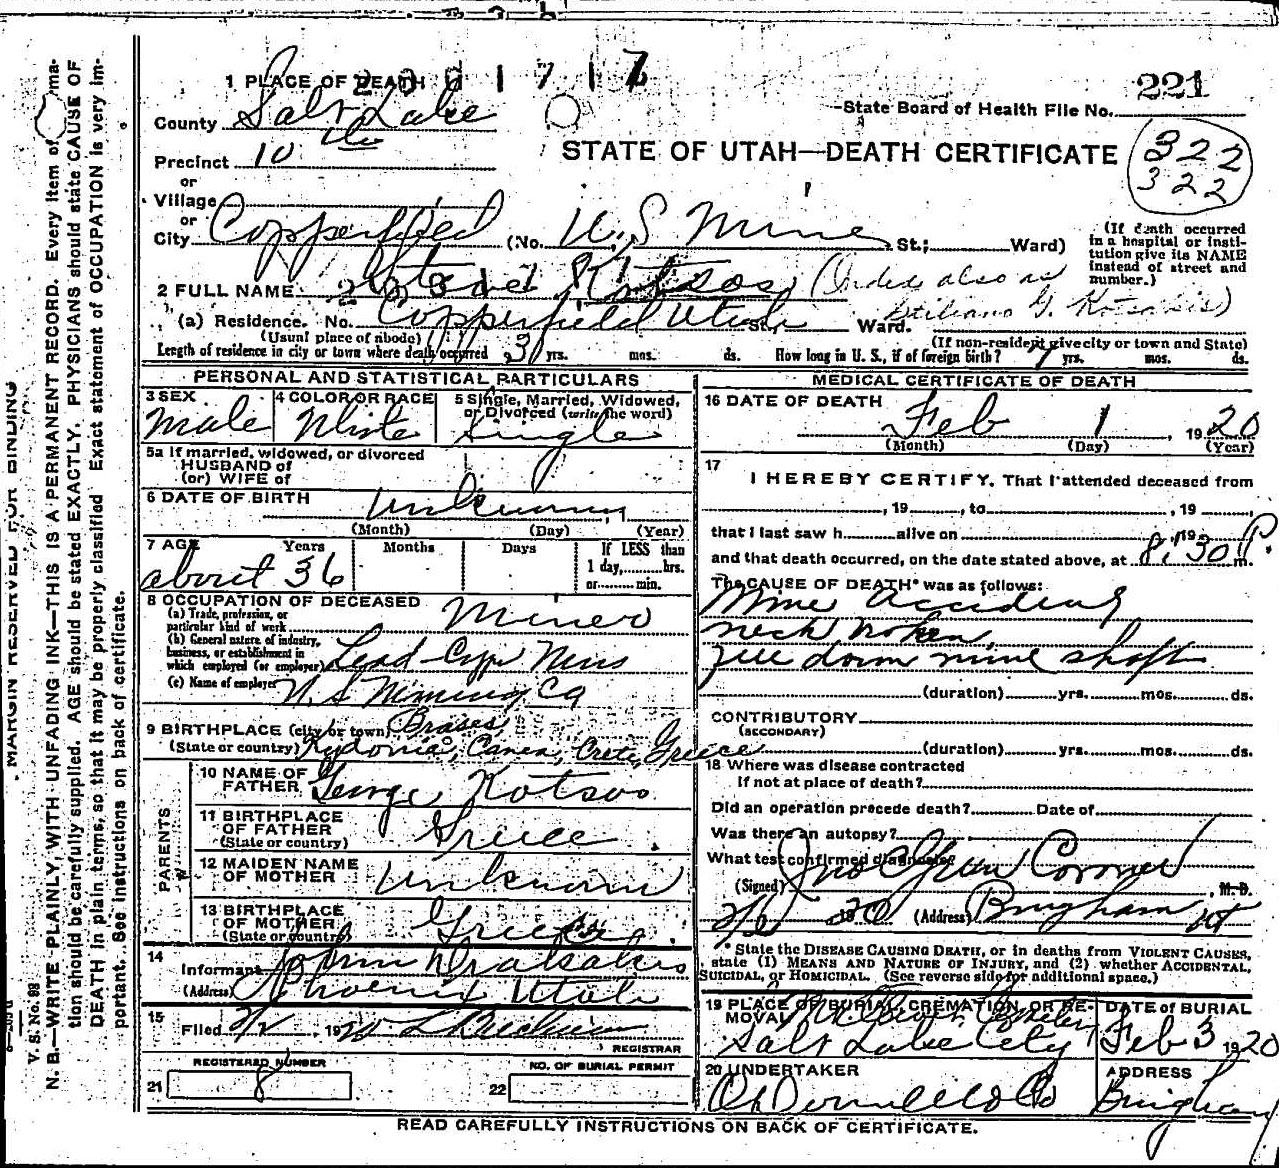 221
State Board of Health File No.
1 PLACE OF DEATH
County Salt Lake
STATE OF UTAH—DEATH CERTIFICATE
322
322
Precinct 10
or
Village
or
City Copperfield (No. U.S Mine St.; Ward)
(If death occurred in a hospital or institution give its NAME instead of street and number.)
2 FULL NAME Kotsos (Index also as
Stiliano G. Kotsakis)
(a) Residence. No. Copperfield Utah St. Ward.
(Usual place of abode) (If non-resident give city or town and State)
Length of residence in city or town where death occurred 3 yrs. mos. ds. How long in U. S., if of foreign birth? 7 yrs. mos. ds.
PERSONAL AND STATISTICAL PARTICULARS
3 SEX Male
4 COLOR OR RACE White
5 Single, Married, Widowed, or Divorced (write the word) Single
5a If married, widowed, or divorced
HUSBAND of
(or) WIFE of
6 DATE OF BIRTH Unknown
(Month) (Day) (Year)
7 AGE Years Months Days If LESS than
1 day, hrs.
or min.
about 36
8 OCCUPATION OF DECEASED
(a) Trade, profession, or particular kind of work Miner
(b) General nature of industry, business, or establishment in which employed (or employer) Lead
(c) Name of employer U. S. Mining Co
9 BIRTHPLACE (city or town) Brases
(State or country) Kydonia, Canea, Crete, Greece
PARENTS
10 NAME OF FATHER George Kotsos
11 BIRTHPLACE OF FATHER (State or country) Greece
12 MAIDEN NAME OF MOTHER Unknown
13 BIRTHPLACE OF MOTHER (State or country) Greece
14 Informant John
(Address) Phoenix Utah
15 Filed 19
REGISTRAR
REGISTERED NUMBER
21 8
NO. OF BURIAL PERMIT
22
MEDICAL CERTIFICATE OF DEATH
16 DATE OF DEATH Feb 1, 1920
(Month) (Day) (Year)
17
I HEREBY CERTIFY, That I attended deceased from
, 19 , to , 19 ,
that I last saw h alive on , 19
and that death occurred, on the date stated above, at 8:30 P. m.
The CAUSE OF DEATH* was as follows:
Mine accident
neck broken
fell down mine shaft
(duration) yrs. mos. ds.
CONTRIBUTORY
(SECONDARY)
(duration) yrs. mos. ds.
18 Where was disease contracted
If not at place of death?
Did an operation precede death? Date of
Was there an autopsy?
What test confirmed diagnosis?
(Signed) Coroner, M. D.
(Address) Bingham Ut
* State the DISEASE CAUSING DEATH, or in deaths from VIOLENT CAUSES,
state (1) MEANS AND NATURE OF INJURY, and (2) whether ACCIDENTAL,
SUICIDAL, or HOMICIDAL. (See reverse side for additional space.)
19 PLACE OF BURIAL, CREMATION, OR REMOVAL
Salt Lake City
DATE of BURIAL
Feb 3 1920
20 UNDERTAKER
ADDRESS
Bingham
READ CAREFULLY INSTRUCTIONS ON BACK OF CERTIFICATE.
MARGIN RESERVED FOR BINDING
V. S. No. 98
N. B.—WRITE PLAINLY, WITH UNFADING INK—THIS IS A PERMANENT RECORD. Every item of
tion should be carefully supplied. AGE should be stated EXACTLY. PHYSICIANS should state CAUSE OF
DEATH in plain terms, so that it may be properly classified. Exact statement of OCCUPATION is very im-
portant. See instructions on back of certificate.